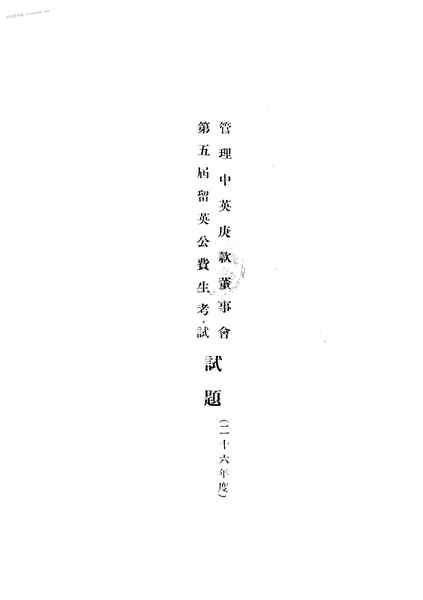 管理中英庚款董事會
第五屆留英公費生考試
試題
(二十六年度)